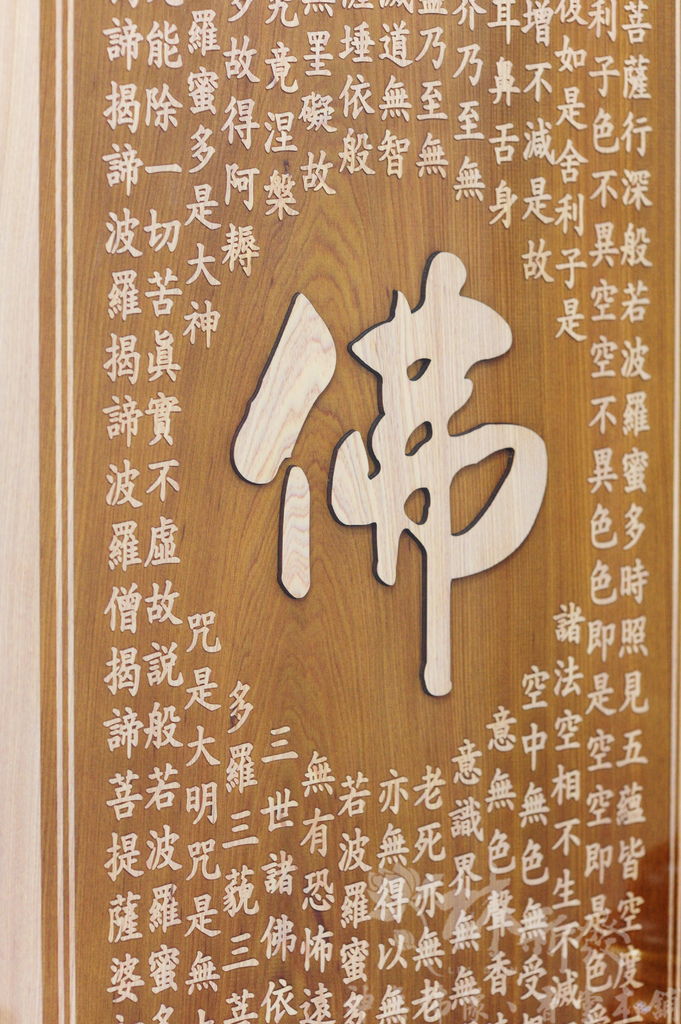 菩薩行深般若波羅蜜多時照見五蘊皆空度
利子色不異空空不異色色即是空空即是色受
復如是舍利子是諸法空相不生不滅
增不減是故空中無色無受想
耳鼻舌身意無色聲香
界乃至無意識界無無
盡乃至無老死亦無老
滅道無智亦無得以無
埵依般若波羅蜜多
無罣礙故無有恐怖遠
究竟涅槃三世諸佛依
多故得阿耨多羅三藐三菩
羅蜜多是大神咒是大明咒是無
能除一切苦眞實不虛故説般若波羅蜜多
諦揭諦波羅揭諦波羅僧揭諦菩提薩婆
佛